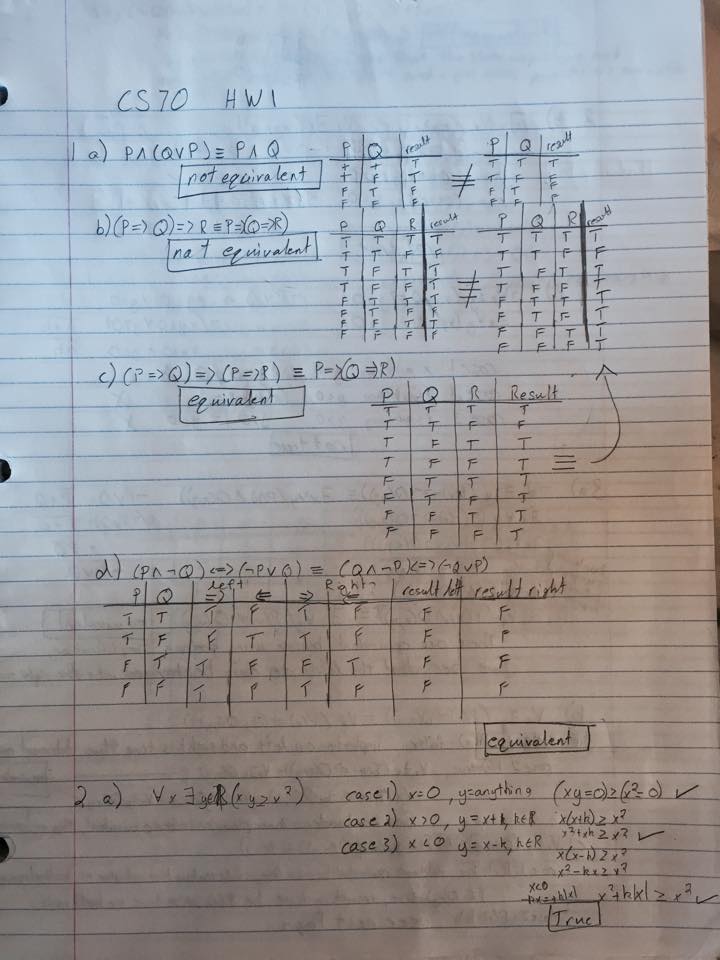 CS70 HW1
1 a) P∧(Q∨P)≡ P∧ Q
not equivalent
P Q result
T T T
T F T
F T F
F F F
≢
P Q result
T T T
T F F
F T F
F F F
b) (P=>Q)=>R ≡ P=>(Q=>R)
not equivalent
P Q R result
T T T T
T T F F
T F T T
T F F T
F T T T
F T F F
F F T T
F F F F
≢
P Q R result
T T T T
T T F F
T F T T
T F F T
F T T T
F T F T
F F T T
F F F T
c) (P=>Q)=>(P=>R) ≡ P=>(Q=>R)
equivalent
P Q R Result
T T T T
T T F F
T F T T
T F F T
F T T T
F T F T
F F T T
F F F T
≡
d) (P∧¬Q)<=>(¬P∨Q) ≡ (Q∧¬P)<=>(¬Q∨P)
left Right
P Q => <= => <= result left result right
T T T F T F F F
T F F T T F F F
F T T F F T F F
F F T F T F F F
equivalent
2 a) ∀x ∃y∈R (xy≥x²) case 1) x=0, y=anything (xy=0)≥(x²=0) ✓
case 2) x>0, y=x+k, k∈R x(x+k)≥x²
x²+xk≥x² ✓
case 3) x<0 y=x-k, k∈R x(x-k)≥x²
x²-kx≥x²
x<0
kx=-k|x| x²+k|x|≥x² ✓
True